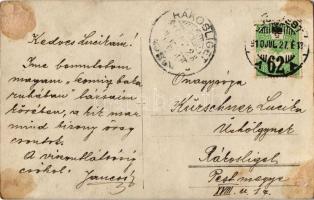 Kedves Lucikám!
Ime bemutatom
magam "komis baka
ruhában" társaim
körében, a kik már
mind bizony
csontok.
A viszontlátásig
csókol! Jancsi
RÁKOSLIGET
910 JUL. 27
62
Önagysága
Hürschner Lucika
Úrhölgynek
Rákosliget
Pest megye
XVIII. u.